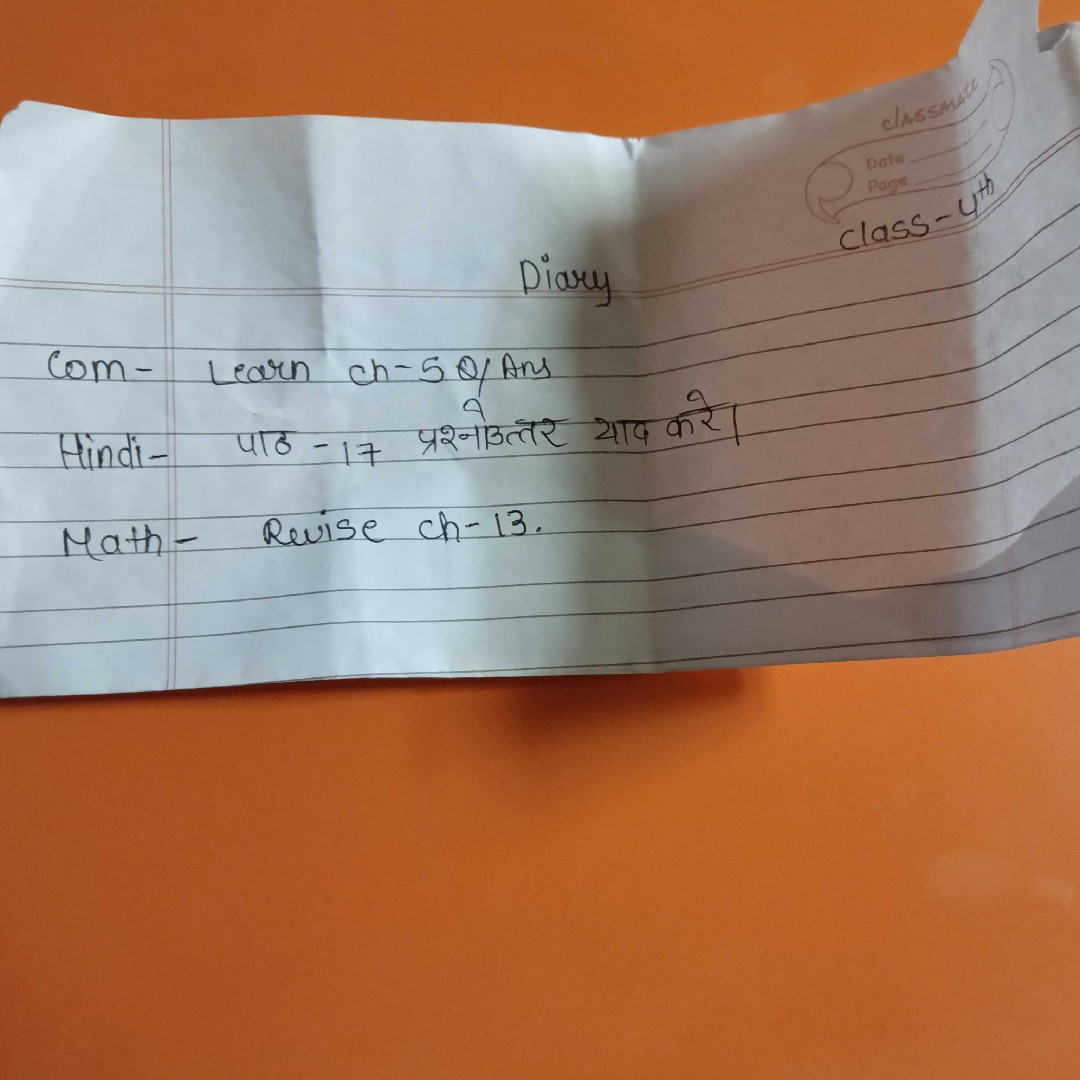 classmate
Date
Page
Class - 4th
Diary
Com - Learn ch-5 Q/Ans
Hindi - पाठ - 17 प्रश्नोउत्तर याद करे।
Math - Revise ch-13.